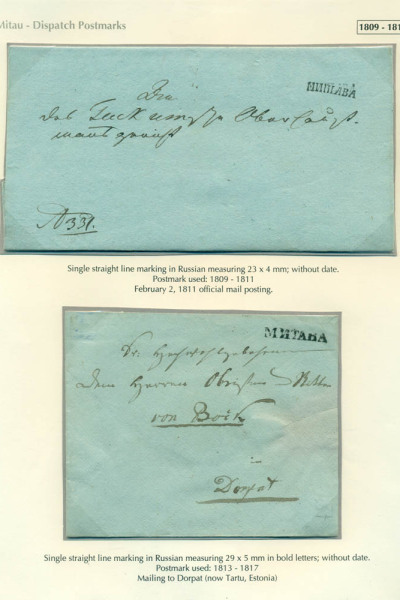 Mitau - Dispatch Postmarks
1809 - 181
МИТАВА
An
Das Tuckumsche Oberhaupt-
manns gericht
N 331.
Single straight line marking in Russian measuring 23 x 4 mm; without date.
Postmark used: 1809 - 1811
February 2, 1811 official mail posting.
МИТАВА
Sr. Hochwohlgebohren
dem Herren Obristen
von Bock
in
Dorpat
Single straight line marking in Russian measuring 29 x 5 mm in bold letters; without date.
Postmark used: 1813 - 1817
Mailing to Dorpat (now Tartu, Estonia)